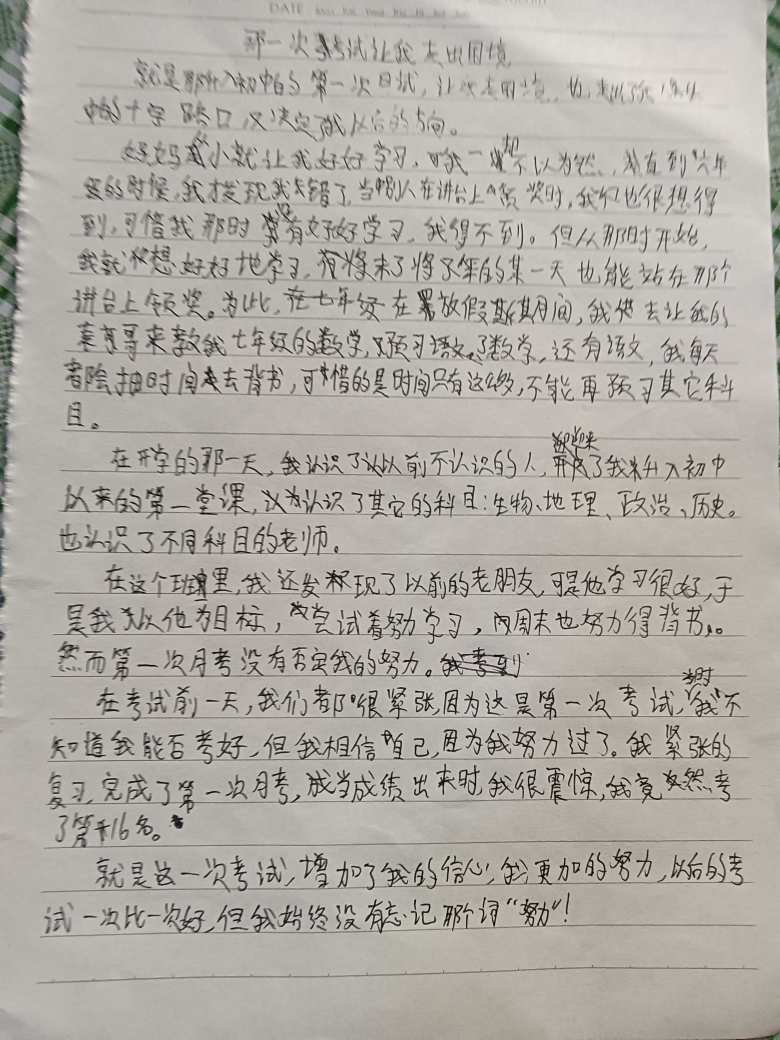 DATE
那一次考试让我走出困境
就是那升入初中的第一次月试，让我走出困境，也走出了人生
中的十字路口，又决定了我以后的方向。
妈妈从小就让我好好学习，可我一却不以为然，直到六年
级的时候，我才发现我失错了，当别人在讲台上领奖时，我也很想得
到，可惜我那时没有好好学习，我得不到。但从那时开始，
我就想好好地学习，在将来了将来的某一天也能站在那个
讲台上领奖。为此，在七年级在暑放假期间，我便去让我的
哥来教我七年级的数学，预习语文了数学，还有语文，我每天
都会抽时间去背书，可惜的是时间只有这么多，不能再预习其它科
目。
在开学的那一天，我认识了以前不认识的人，迎来了我升入初中
以来的第一堂课，认为认识了其它的科目：生物、地理、政治、历史。
也认识了不同科目的老师。
在这个班里，我还发现了以前的老朋友，可是他学习很好，于
是我以他为目标，尝试着努力学习，周末也努力得背书。
然而第一次月考没有否定我的努力。
在考试前一天，我们都很紧张，因为这是第一次考试，当时我不
知道我能否考好，但我相信自己，因为我努力过了。我紧张的
复习，完成了第一次月考，当成绩出来时，我很震惊，我竟然考
了第16名。
就是这一次考试，增加了我的信心，我更加的努力，以后的考
试一次比一次好，但我始终没有忘记那个词“努力”！